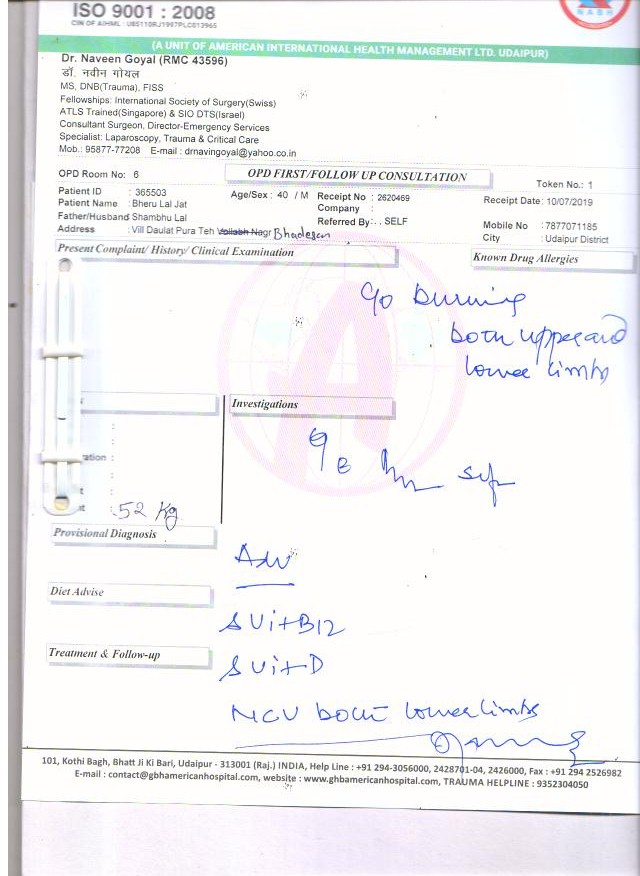 ISO 9001 : 2008
CIN OF AIHML : U85110RJ1997PLC013965
NABH
(A UNIT OF AMERICAN INTERNATIONAL HEALTH MANAGEMENT LTD. UDAIPUR)
Dr. Naveen Goyal (RMC 43596)
डॉ. नवीन गोयल
MS, DNB(Trauma), FISS
Fellowships: International Society of Surgery(Swiss)
ATLS Trained(Singapore) & SIO DTS(Israel)
Consultant Surgeon, Director-Emergency Services
Specialist: Laparoscopy, Trauma & Critical Care
Mob.: 95877-77208 E-mail : drnavingoyal@yahoo.co.in
OPD Room No: 6 OPD FIRST/FOLLOW UP CONSULTATION Token No.: 1
Patient ID : 365503 Age/Sex : 40 / M Receipt No : 2620469 Receipt Date: 10/07/2019
Patient Name : Bheru Lal Jat Company :
Father/Husband Shambhu Lal Referred By: . . SELF Mobile No : 7877071185
Address : Vill Daulat Pura Teh Nagr City : Udaipur District
Present Complaint/ History/ Clinical Examination Known Drug Allergies
c/o burning
both upper and
lower limbs
Investigations
52 Kg
Provisional Diagnosis
Adv
Diet Advise
S Vit B12
Treatment & Follow-up
S Vit D
NCV both lower limbs
101, Kothi Bagh, Bhatt Ji Ki Bari, Udaipur - 313001 (Raj.) INDIA, Help Line : +91 294-3056000, 2428701-04, 2426000, Fax : +91 294 2526982
E-mail : contact@gbhamericanhospital.com, website : www.gbhamericanhospital.com, TRAUMA HELPLINE : 9352304050